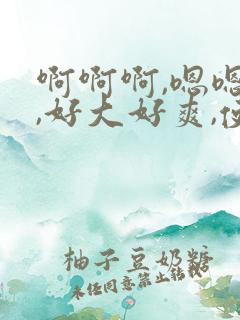 啊啊啊,嗯嗯
,好大好爽,
柚子豆奶糖
未任同意禁止转载